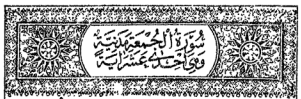 سُوْرَةُ الْجُمُعَةِ مَدَنِيَّةٌ
وَهِيَ اِحْدٰى عَشْرَةَ اٰيَةً